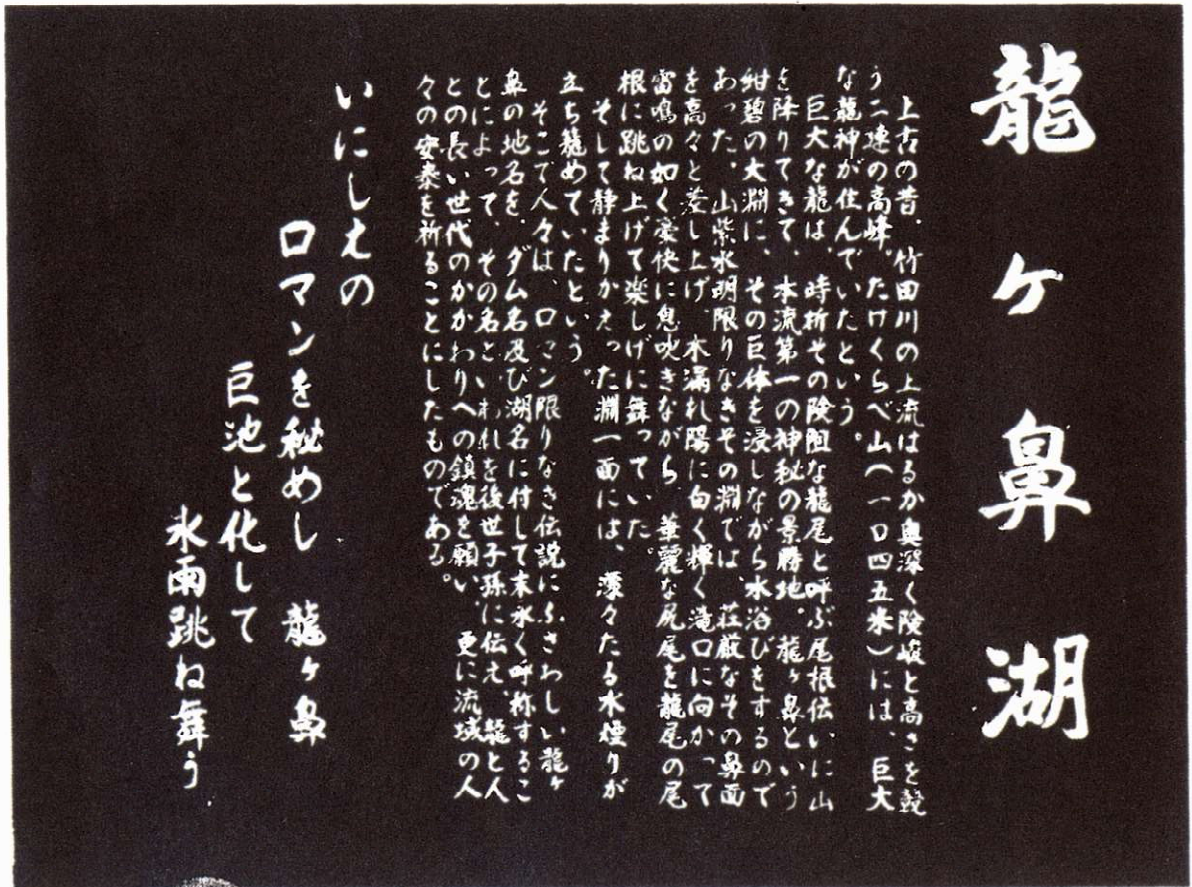 龍ヶ鼻湖
上古の昔、竹田川の上流はるか奥深く険峻と高さを競
う二連の高峰。たけくらべ山(一〇四五米)には、巨大
な龍神が住んでいたという。
巨大な龍は、時折その険阻な龍尾と呼ぶ尾根伝いに山
を降りてきて、本流第一の神秘の景勝地。龍ヶ鼻という
紺碧の大淵に、その巨体を浸しながら水浴びをするので
あった。山紫水明限りなきその淵では、荘厳なその鼻面
を高々と差し上げ、木漏れ陽に白く輝く滝口に向かって
雷鳴の如く豪快に息吹きながら、華麗な尻尾を龍尾の尾
根に跳ね上げて楽しげに舞っていた。
そして静まりかえった淵一面には、濛々たる水煙りが
立ち籠めていたという。
そこで人々は、ロマン限りなき伝説にふさわしい龍ヶ
鼻の地名を、ダム名及び湖名に付して末永く呼称するこ
とによって、その名といわれを後世子孫に伝え、龍と人
との長い世代のかかわりへの鎮魂を願い、更に流域の人
々の安泰を祈ることにしたものである。
いにしえの
ロマンを秘めし 龍ヶ鼻
巨池と化して
氷雨跳ね舞う